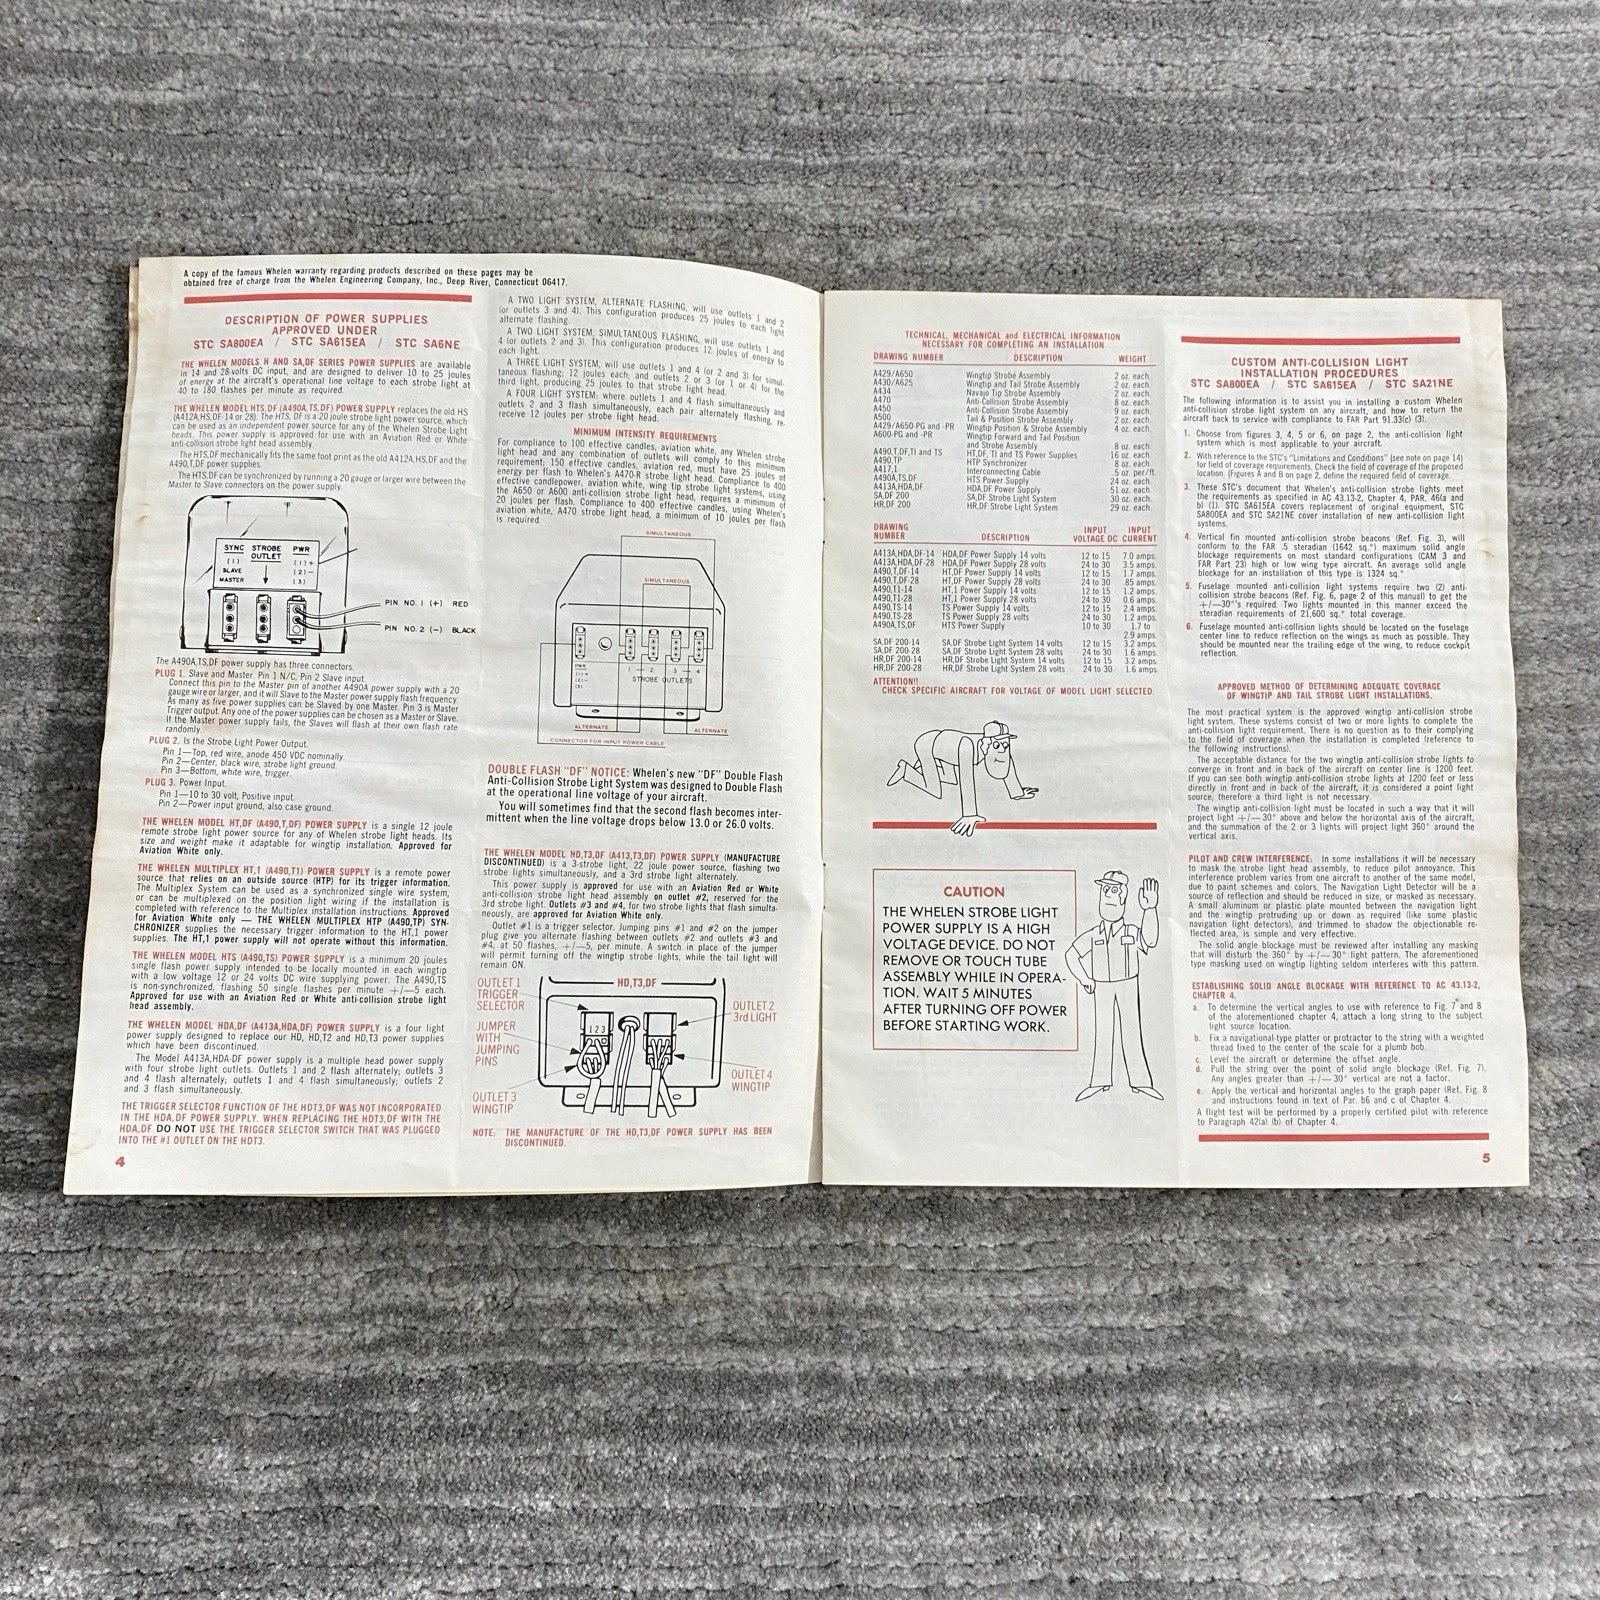 A copy of the famous Whelen warranty regarding products described on these pages may be
obtained free of charge from the Whelen Engineering Company, Inc., Deep River, Connecticut 06417.
DESCRIPTION OF POWER SUPPLIES
APPROVED UNDER
STC SA800EA / STC SA615EA / STC SA6NE
THE WHELEN MODELS H AND SA,DF SERIES POWER SUPPLIES are available
in 14 and 28-volts DC input, and are designed to deliver 10 to 25 joules
of energy at the aircraft's operational line voltage to each strobe light at
40 to 180 flashes per minute as required.
THE WHELEN MODEL HTS,DF (A490A,TS,DF) POWER SUPPLY replaces the old HS
(A412A,HS,DF-14 or 28). The HTS, DF is a 20 joule strobe light power source, which
can be used as an independent power source for any of the Whelen Strobe Light
heads. This power supply is approved for use with an Aviation Red or White
anti-collision strobe light head assembly.
The HTS,DF mechanically fits the same foot print as the old A412A,HS,DF and the
A490,T,DF power supplies.
The HTS,DF can be synchronized by running a 20 gauge or larger wire between the
Master to Slave connectors on the power supply.
SYNC STROBE PWR
OUTLET
(1) (1)+
SLAVE (2)-
MASTER (3)
PIN NO. 1 (+) RED
PIN NO. 2 (-) BLACK
The A490A,TS,DF power supply has three connectors.
PLUG 1. Slave and Master. Pin 1 N/C, Pin 2 Slave input.
Connect this pin to the Master pin of another A490A power supply with a 20
gauge wire or larger, and it will Slave to the Master power supply flash frequency.
As many as five power supplies can be Slaved by one Master. Pin 3 is Master
Trigger output. Any one of the power supplies can be chosen as a Master or Slave.
If the Master power supply fails, the Slaves will flash at their own flash rate
randomly.
PLUG 2. Is the Strobe Light Power Output.
Pin 1—Top, red wire, anode 450 VDC nominally.
Pin 2—Center, black wire, strobe light ground.
Pin 3—Bottom, white wire, trigger.
PLUG 3. Power Input.
Pin 1—10 to 30 volt, Positive input.
Pin 2—Power input ground, also case ground.
THE WHELEN MODEL HT,DF (A490,T,DF) POWER SUPPLY is a single 12 joule
remote strobe light power source for any of Whelen strobe light heads. Its
size and weight make it adaptable for wingtip installation. Approved for
Aviation White only.
THE WHELEN MULTIPLEX HT,1 (A490,T1) POWER SUPPLY is a remote power
source that relies on an outside source (HTP) for its trigger information.
The Multiplex System can be used as a synchronized single wire system,
or can be multiplexed on the position light wiring if the installation is
completed with reference to the Multiplex installation instructions. Approved
for Aviation White only — THE WHELEN MULTIPLEX HTP (A490,TP) SYN-
CHRONIZER supplies the necessary trigger information to the HT,1 power
supplies. The HT,1 power supply will not operate without this information.
THE WHELEN MODEL HTS (A490,TS) POWER SUPPLY is a minimum 20 joules
single flash power supply intended to be locally mounted in each wingtip
with a low voltage 12 or 24 volts DC wire supplying power. The A490,TS
is non-synchronized, flashing 50 single flashes per minute +/—5 each.
Approved for use with an Aviation Red or White anti-collision strobe light
head assembly.
THE WHELEN MODEL HDA,DF (A413A,HDA,DF) POWER SUPPLY is a four light
power supply designed to replace our HD, HD,T2 and HD,T3 power supplies
which have been discontinued.
The Model A413A,HDA-DF power supply is a multiple head power supply
with four strobe light outlets. Outlets 1 and 2 flash alternately; outlets 3
and 4 flash alternately; outlets 1 and 4 flash simultaneously; outlets 2
and 3 flash simultaneously.
THE TRIGGER SELECTOR FUNCTION OF THE HDT3,DF WAS NOT INCORPORATED
IN THE HDA,DF POWER SUPPLY. WHEN REPLACING THE HDT3,DF WITH THE
HDA,DF DO NOT USE THE TRIGGER SELECTOR SWITCH THAT WAS PLUGGED
INTO THE #1 OUTLET ON THE HDT3.
4
A TWO LIGHT SYSTEM, ALTERNATE FLASHING, will use outlets 1 and 2
(or outlets 3 and 4). This configuration produces 25 joules to each light
alternate flashing.
A TWO LIGHT SYSTEM, SIMULTANEOUS FLASHING, will use outlets 1 and
4 (or outlets 2 and 3). This configuration produces 12 joules of energy to
each light.
A THREE LIGHT SYSTEM, will use outlets 1 and 4 (or 2 and 3) for simul-
taneous flashing; 12 joules each, and outlets 2 or 3 (or 1 or 4) for the
third light, producing 25 joules to that strobe light head.
A FOUR LIGHT SYSTEM: where outlets 1 and 4 flash simultaneously and
outlets 2 and 3 flash simultaneously, each pair alternately flashing, re-
ceive 12 joules per strobe light head.
MINIMUM INTENSITY REQUIREMENTS
For compliance to 100 effective candles, aviation white, any Whelen strobe
light head and any combination of outlets will comply to this minimum
requirement; 150 effective candles, aviation red, must have 25 joules of
energy per flash to Whelen's A470-R strobe light head. Compliance to 400
effective candlepower, aviation white, wing tip strobe light systems, using
the A650 or A600 anti-collision strobe light head, requires a minimum of
20 joules per flash. Compliance to 400 effective candles, using Whelen's
aviation white, A470 strobe light head, a minimum of 10 joules per flash
is required.
SIMULTANEOUS
SIMULTANEOUS
PWR
(1)+
(2)-
(3)
1 — 2 3 — 4
STROBE OUTLETS
ALTERNATE
ALTERNATE
CONNECTOR FOR INPUT POWER CABLE
DOUBLE FLASH "DF" NOTICE: Whelen's new "DF" Double Flash
Anti-Collision Strobe Light System was designed to Double Flash
at the operational line voltage of your aircraft.
You will sometimes find that the second flash becomes inter-
mittent when the line voltage drops below 13.0 or 26.0 volts.
THE WHELEN MODEL HD,T3,DF (A413,T3,DF) POWER SUPPLY (MANUFACTURE
DISCONTINUED) is a 3-strobe light, 22 joule power source, flashing two
strobe lights simultaneously, and a 3rd strobe light alternately.
This power supply is approved for use with an Aviation Red or White
anti-collision strobe light head assembly on outlet #2, reserved for the
3rd strobe light. Outlets #3 and #4, for two strobe lights that flash simulta-
neously, are approved for Aviation White only.
Outlet #1 is a trigger selector. Jumping pins #1 and #2 on the jumper
plug give you alternate flashing between outlets #2 and outlets #3 and
#4, at 50 flashes, +/—5, per minute. A switch in place of the jumper
will permit turning off the wingtip strobe lights, while the tail light will
remain ON.
OUTLET 1
TRIGGER
SELECTOR
HD,T3,DF
OUTLET 2
3rd LIGHT
1 2 3
JUMPER
WITH
JUMPING
PINS
OUTLET 4
WINGTIP
OUTLET 3
WINGTIP
NOTE: THE MANUFACTURE OF THE HD,T3,DF POWER SUPPLY HAS BEEN
DISCONTINUED.
TECHNICAL, MECHANICAL and ELECTRICAL INFORMATION
NECESSARY FOR COMPLETING AN INSTALLATION
DRAWING NUMBER DESCRIPTION WEIGHT
A429/A650 Wingtip Strobe Assembly 2 oz. each.
A430/A625 Wingtip and Tail Strobe Assembly 2 oz. each.
A434 Navajo Tip Strobe Assembly 2 oz. each.
A470 Anti-Collision Strobe Assembly 8 oz. each.
A450 Anti-Collision Strobe Assembly 9 oz. each.
A500 Tail & Position Strobe Assembly 2 oz. each.
A429/A650-PG and -PR Wingtip Position & Strobe Assembly 4 oz. each.
A600-PG and -PR Wingtip Forward and Tail Position
and Strobe Assembly 8 oz. each.
A490,T,DF,TI and TS HT,DF, TI and TS Power Supplies 16 oz. each.
A490,TP HTP Synchronizer 8 oz. each.
A417,1 Interconnecting Cable .5 oz. per/ft.
A490A,TS,DF HTS Power Supply 24 oz. each.
A413A,HDA,DF HDA,DF Power Supply 51 oz. each.
SA,DF 200 SA,DF Strobe Light System 30 oz. each.
HR,DF 200 HR,DF Strobe Light System 29 oz. each.
DRAWING INPUT INPUT
NUMBER DESCRIPTION VOLTAGE DC CURRENT
A413A,HDA,DF-14 HDA,DF Power Supply 14 volts 12 to 15 7.0 amps.
A413A,HDA,DF-28 HDA,DF Power Supply 28 volts 24 to 30 3.5 amps.
A490,T,DF-14 HT,DF Power Supply 14 volts 12 to 15 1.7 amps.
A490,T,DF-28 HT,DF Power Supply 28 volts 24 to 30 .85 amps.
A490,T1-14 HT,1 Power Supply 14 volts 12 to 15 1.2 amps.
A490,T1-28 HT,1 Power Supply 28 volts 24 to 30 0.6 amps.
A490,TS-14 TS Power Supply 14 volts 12 to 15 2.4 amps.
A490,TS-28 TS Power Supply 28 volts 24 to 30 1.2 amps.
A490A,TS,DF HTS Power Supply 10 to 30 1.7 to
2.9 amps.
SA,DF 200-14 SA,DF Strobe Light System 14 volts 12 to 15 3.2 amps.
SA,DF 200-28 SA,DF Strobe Light System 28 volts 24 to 30 1.6 amps.
HR,DF 200-14 HR,DF Strobe Light System 14 volts 12 to 15 3.2 amps.
HR,DF 200-28 HR,DF Strobe Light System 28 volts 24 to 30 1.6 amps.
ATTENTION!!
CHECK SPECIFIC AIRCRAFT FOR VOLTAGE OF MODEL LIGHT SELECTED.
CAUTION
THE WHELEN STROBE LIGHT
POWER SUPPLY IS A HIGH
VOLTAGE DEVICE. DO NOT
REMOVE OR TOUCH TUBE
ASSEMBLY WHILE IN OPERA-
TION. WAIT 5 MINUTES
AFTER TURNING OFF POWER
BEFORE STARTING WORK.
CUSTOM ANTI-COLLISION LIGHT
INSTALLATION PROCEDURES
STC SA800EA / STC SA615EA / STC SA21NE
The following information is to assist you in installing a custom Whelen
anti-collision strobe light system on any aircraft, and how to return the
aircraft back to service with compliance to FAR Part 91.33(c) (3).
1. Choose from figures 3, 4, 5 or 6, on page 2, the anti-collision light
system which is most applicable to your aircraft.
2. With reference to the STC's "Limitations and Conditions" (see note on page 14)
for field of coverage requirements. Check the field of coverage of the proposed
location. (Figures A and B on page 2, define the required field of coverage.
3. These STC's document that Whelen's anti-collision strobe lights meet
the requirements as specified in AC 43.13-2, Chapter 4, PAR. 46(a and
b) (1). STC SA615EA covers replacement of original equipment, STC
SA800EA and STC SA21NE cover installation of new anti-collision light
systems.
4. Vertical fin mounted anti-collision strobe beacons (Ref. Fig. 3), will
conform to the FAR .5 steradian (1642 sq.°) maximum solid angle
blockage requirements on most standard configurations (CAM 3 and
FAR Part 23) high or low wing type aircraft. An average solid angle
blockage for an installation of this type is 1324 sq.°
5. Fuselage mounted anti-collision light systems require two (2) anti-
collision strobe beacons (Ref. Fig. 6, page 2 of this manual) to get the
+/—30°'s required. Two lights mounted in this manner exceed the
steradian requirements of 21,600 sq.° total coverage.
6. Fuselage mounted anti-collision lights should be located on the fuselage
center line to reduce reflection on the wings as much as possible. They
should be mounted near the trailing edge of the wing, to reduce cockpit
reflection.
APPROVED METHOD OF DETERMINING ADEQUATE COVERAGE
OF WINGTIP AND TAIL STROBE LIGHT INSTALLATIONS.
The most practical system is the approved wingtip anti-collision strobe
light system. These systems consist of two or more lights to complete the
anti-collision light requirement. There is no question as to their complying
to the field of coverage when the installation is completed (reference to
the following instructions).
The acceptable distance for the two wingtip anti-collision strobe lights to
converge in front and in back of the aircraft on center line is 1200 feet.
If you can see both wingtip anti-collision strobe lights at 1200 feet or less
directly in front and in back of the aircraft, it is considered a point light
source, therefore a third light is not necessary.
The wingtip anti-collision light must be located in such a way that it will
project light +/—30° above and below the horizontal axis of the aircraft,
and the summation of the 2 or 3 lights will project light 360° around the
vertical axis.
PILOT AND CREW INTERFERENCE: In some installations it will be necessary
to mask the strobe light head assembly, to reduce pilot annoyance. This
interference problem varies from one aircraft to another of the same model,
due to paint schemes and colors. The Navigation Light Detector will be a
source of reflection and should be reduced in size, or masked as necessary.
A small aluminum or plastic plate mounted between the navigation light
and the wingtip protruding up or down as required (like some plastic
navigation light detectors), and trimmed to shadow the objectionable re-
flected area, is simple and very effective.
The solid angle blockage must be reviewed after installing any masking
that will disturb the 360° by +/—30° light pattern. The aforementioned
type masking used on wingtip lighting seldom interferes with this pattern.
ESTABLISHING SOLID ANGLE BLOCKAGE WITH REFERENCE TO AC 43.13-2,
CHAPTER 4.
a. To determine the vertical angles to use with reference to Fig. 7 and 8
of the aforementioned chapter 4, attach a long string to the subject
light source location.
b. Fix a navigational-type platter or protractor to the string with a weighted
thread fixed to the center of the scale for a plumb bob.
c. Level the aircraft or determine the offset angle.
d. Pull the string over the point of solid angle blockage (Ref. Fig. 7).
Any angles greater than +/—30° vertical are not a factor.
e. Apply the vertical and horizontal angles to the graph paper (Ref. Fig. 8
and instructions found in text of Par. b6 and c of Chapter 4.
A flight test will be performed by a properly certified pilot with reference
to Paragraph 42(a) (b) of Chapter 4.
5